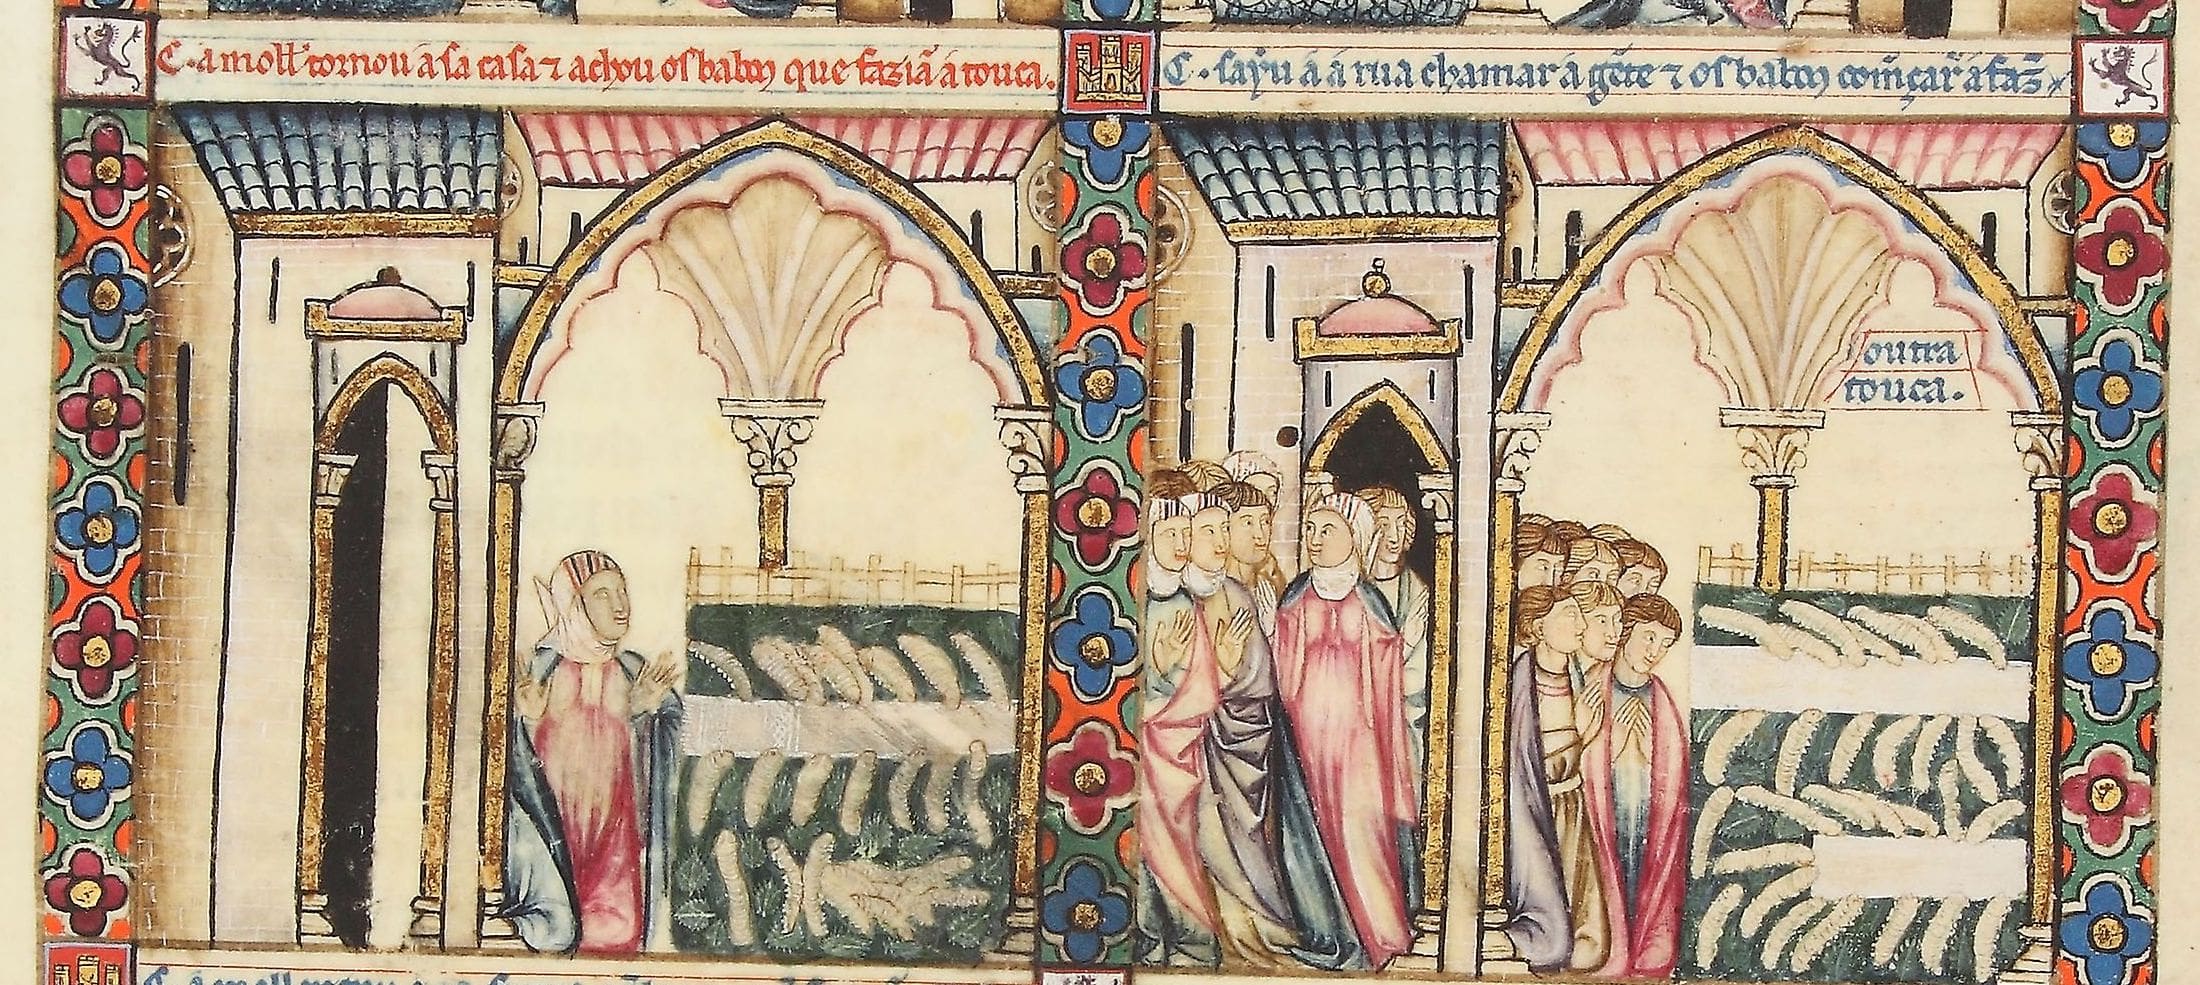 C. a moll̃ tornou a sa casa ⁊ achou os baboṇ que faziã a touca.
C. sayu á á rua chamar a gẽte ⁊ os baboṇ comẽçar̃ a faz̃
outra
touca.